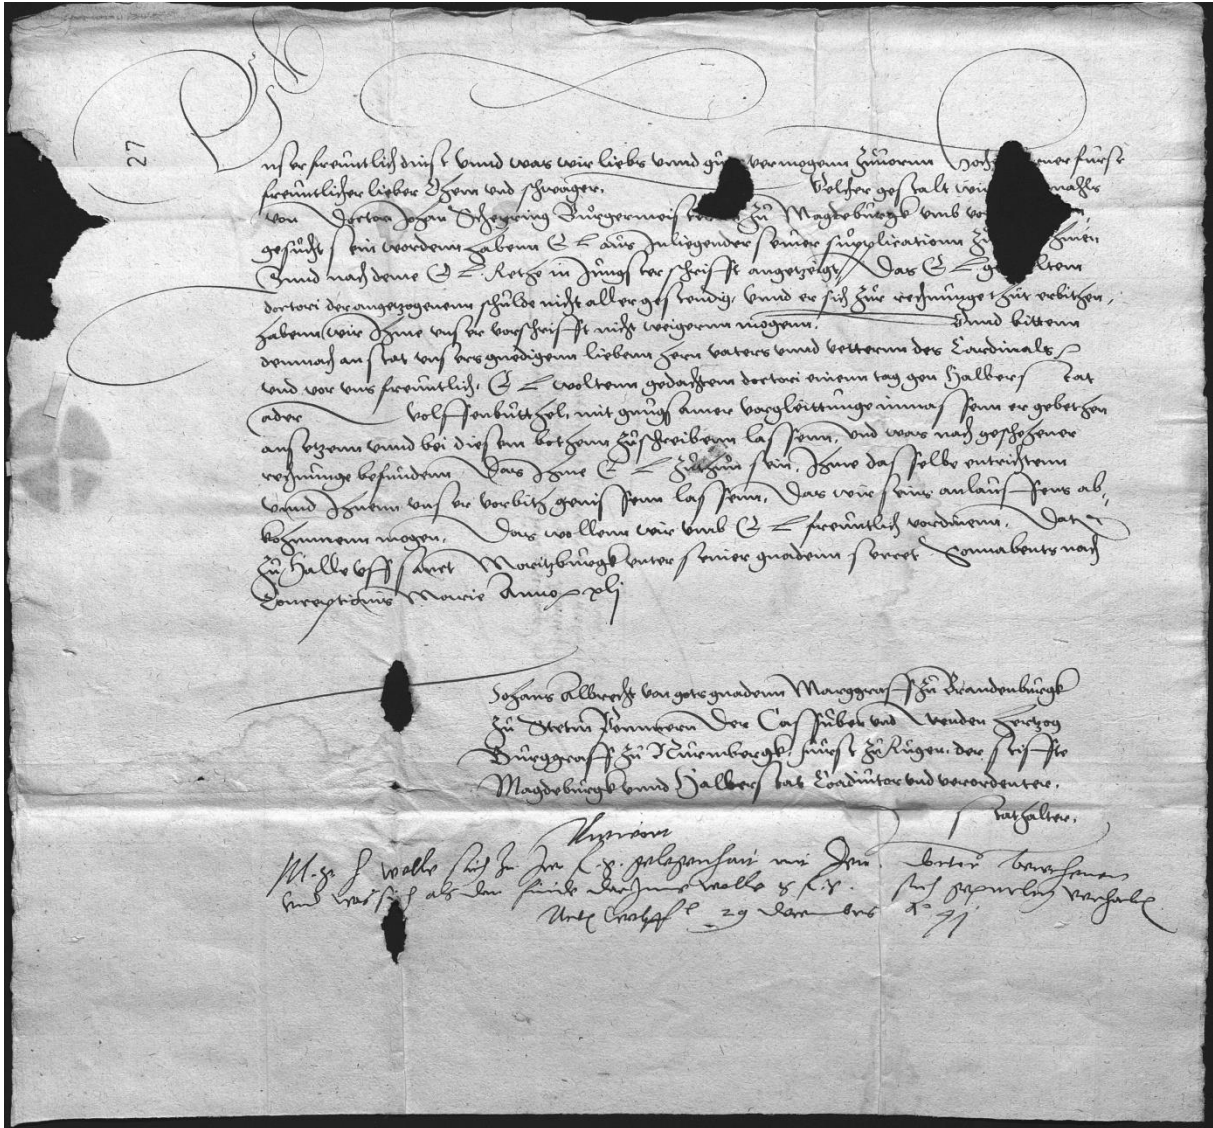 27
Unser freuntlich dinst unnd was wir liebs unnd gu vermogenn zuvornn Hoch ener furst
freuntlicher lieber Ohem und schwager. Welcher gestalt wir mahls
von Doctor Johan Scheyring Burgermeister zu Magdeburgk umb vo
gesucht sein wordenn habenn E L aus Inliegender seiner supplicationn zu
Unnd nach deme E L Rethe in Jungster schrifft angetzeigt, Das E L g ltem
doctori der angetzogenenn schulde nicht aller gestendig, unnd er sich zur rechnunge thut erbithen,
habenn wir Ihme unser vorschrifft nicht weigernn mogenn. Unnd bittenn
demnach an stat unsers gnedigenn liebenn hern vaters unnd vetternn des Cardinals
und vor uns freuntlich, E L woltenn gedachtem doctori einenn tag gen Halberstat
ader Wolffenbutthel, mit gnugsamer vorgleittunge inmassenn er gebethen
ansetzenn unnd bei diesem bothenn zuschreibenn lassenn, und was nach geschehener
rechnunge befundenn Das Ihme E L zuthun sein, Ihme dasselbe entrichtenn
unnd Ihnenn unser vorbith genissenn lassenn, Das wir seins anlauffens ab,
kohmmenn mogen, Das wollenn wir umb E L freuntlich vordinenn, Dat
zu Halle uff sanct Moritzburgk unter seiner gnadenn secret Sonnabents nach
Conceptionis Marie Anno xlj
Johans Albrecht von gots gnadenn Marggraff zu Brandenburgk
zu Stetin Pommern Der Cassuben und Wenden Hertzog
Burggraff zu Nurmbergk, furst zu Rugen, der stiffte
Magdeburgk unnd Halberstat Coadiutor und verordenter,
stathalter,
M g h wolle sich zu Irer f. g. gelegenhait mit dem doctor berechenen
und was sich als dan finde wolle s f g sich geburlich
29 decembris